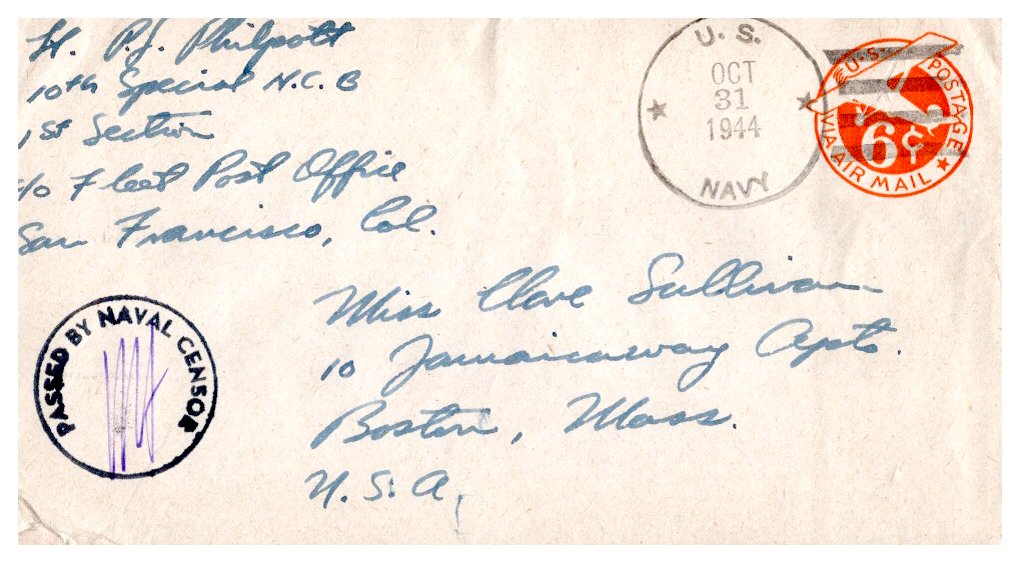 Lt. P.J. Philpott
10th Special N.C.B
1st Section
c/o Fleet Post Office
San Francisco, Cal.
U. S.
OCT
31
1944
NAVY
U.S. POSTAGE
VIA AIR MAIL
6¢
Miss Clare Sullivan
10 Jamaicaway Apts.
Boston, Mass.
U.S.A.
PASSED BY NAVAL CENSOR